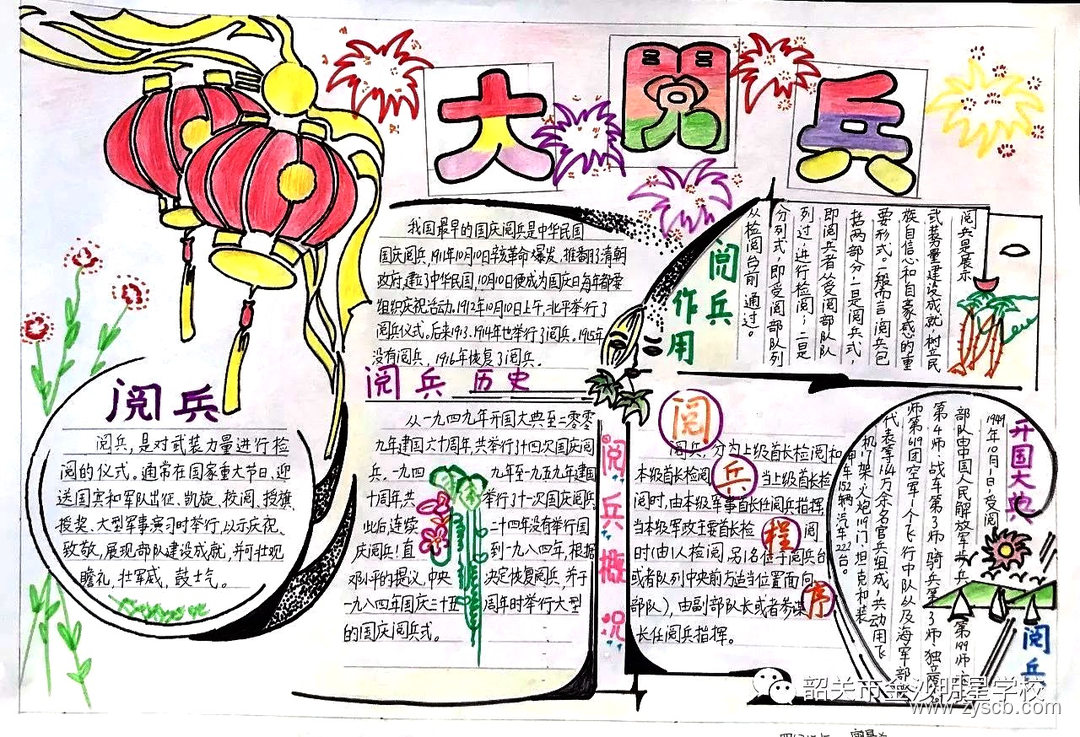 大阅兵
阅兵
阅兵，是对武装力量进行检
阅的仪式。通常在国家重大节日、迎
送国宾和军队出征、凯旋、校阅、授旗、
授奖、大型军事演习时举行，以示庆祝、
致敬，展现部队建设成就，并可壮观
瞻礼，壮军威，鼓士气。
我国最早的国庆阅兵是中华民国
国庆阅兵，1911年10月10日辛亥革命爆发，推翻了清朝
政府，建了中华民国，10月10日便成为国庆日每年都要
组织庆祝活动。1912年10月10日上午，北平举行了
阅兵仪式。后来1913、1914年也举行了阅兵。1915年
没有阅兵，1916年恢复了阅兵。
阅兵历史
从一九四九年开国大典至二零零
九年建国六十周年，共举行计十四次国庆阅
兵。一九四九年至一九五九年建国
十周年，共举行了十一次国庆阅兵
此后连续二十四年没有举行国
庆阅兵！直到一九八四年，根据
邓小平的提议，中央决定恢复阅兵，并于
一九八四年国庆三十五周年时举行大型
的国庆阅兵式。
阅兵概况
阅兵作用
阅兵是展示
武装力量建设成就，树立民
族自信心和自豪感的重
要形式。一般而言，阅兵包
括两部分：一是阅兵式，
即阅兵者从受阅部队队
列过，进行检阅；二是
分列式，即受阅部队列
从检阅台前通过。
阅兵程序
阅兵，分为上级首长检阅和
本级首长检阅，当上级首长检
阅时，由本级军事首长任阅兵指挥，
当本级军政主要首长检阅
时（由1人检阅，另1名位于阅兵台
或者队列中央前方适当位置面向
部队），由副部队长或者参谋
长任阅兵指挥。
开国大典
阅兵
1949年10月1日，受阅
部队由中国人民解放军步兵第199师、
第4师，战车第3师，骑兵第3师，独立
师第619团，空军1个飞行中队以及海军部
代表等1.64万余名官兵组成，共动用飞
机17架，火炮119门，坦克和装
甲车152辆，汽车222台。
韶关市金沙明星学校
www.zyscb.com